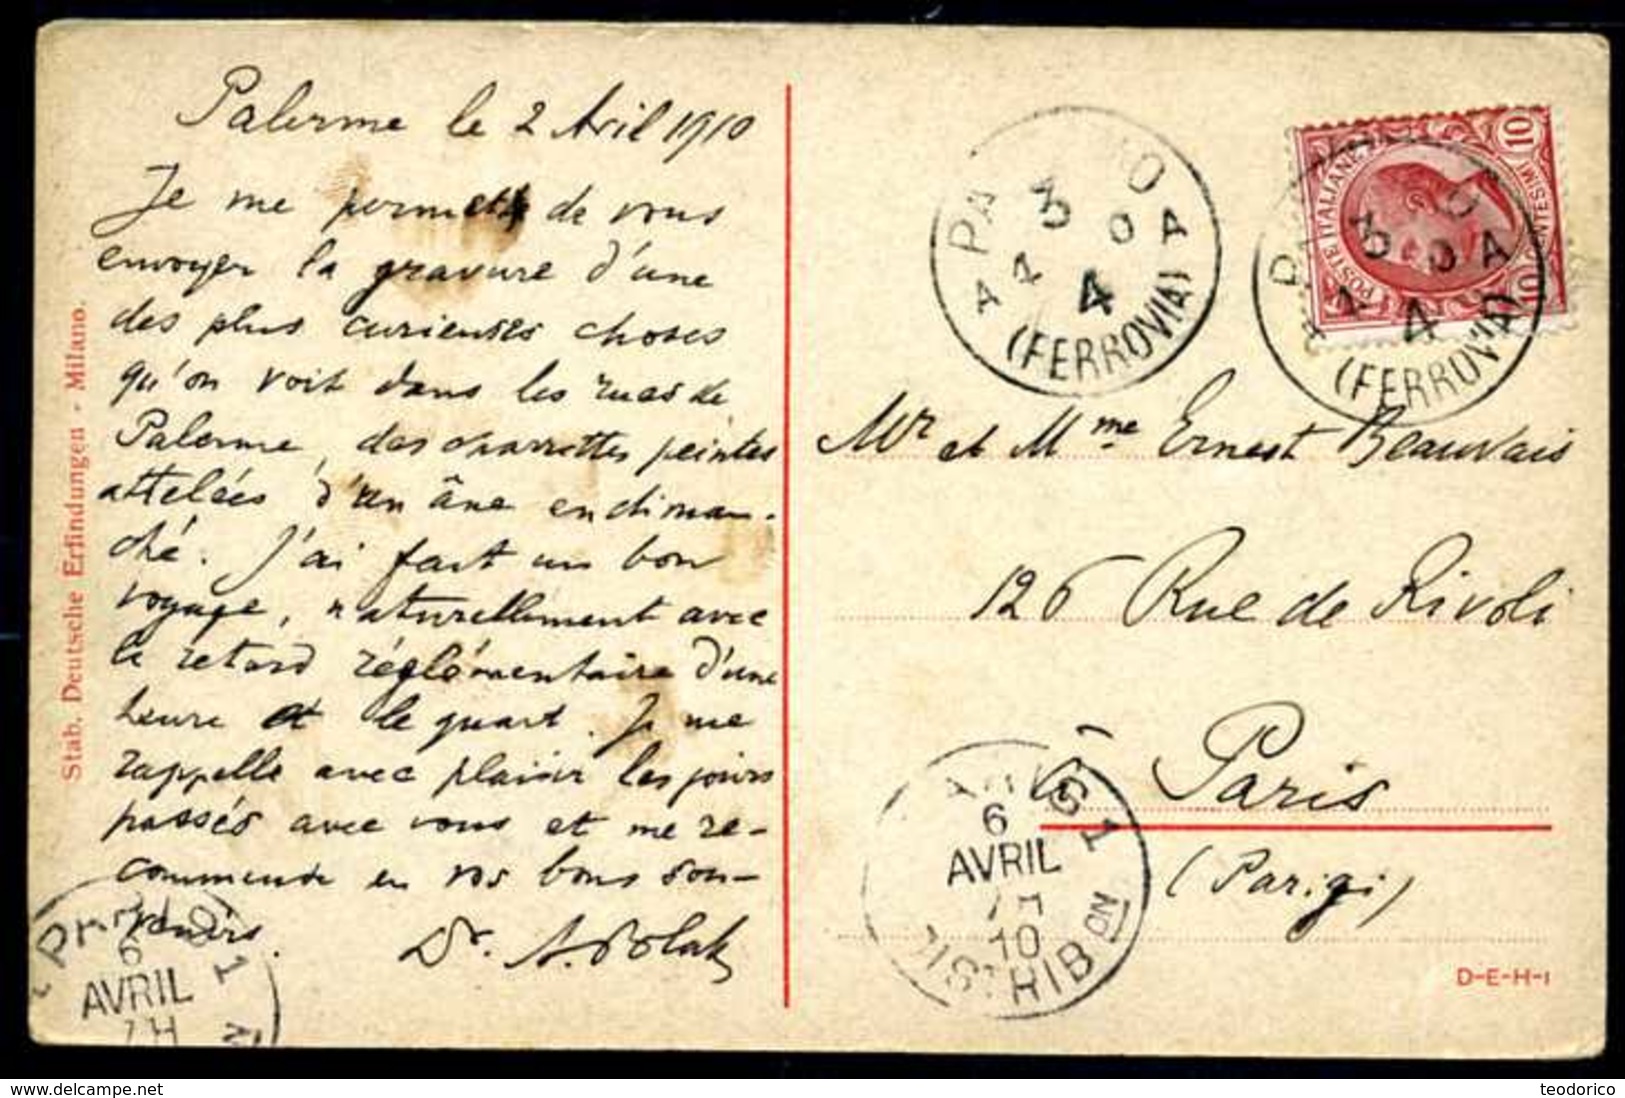 Palerme le 2 Avril 1910
Je me permets de vous
envoyer la gravure d'une
des plus curieuses choses
qu'on voit dans les rues de
Palerme, des charrettes peintes
attelées d'un âne endiman-
ché. J'ai fait un bon
voyage, naturellement avec
le retard réglémentaire d'une
heure et le quart. Je me
rappelle avec plaisir les jours
passés avec vous et me re-
commende en vos bons sou-
venirs.
Dr. A. Polak
Stab. Deutsche Erfindungen - Milano.
PA O
3
4 0 A
A 1
(FERROVIA)
POSTE ITALIANE
10
CENTESIMI
10
3
0 A
4
(FERROVIA)
Mr et Mme Ernest Beauvais
126 Rue de Rivoli
à Paris
(Parigi)
6
AVRIL
10
DISTRIBON
PARIS 1
6
AVRIL
7H
D-E-H-I
delcampe.net
teodorico